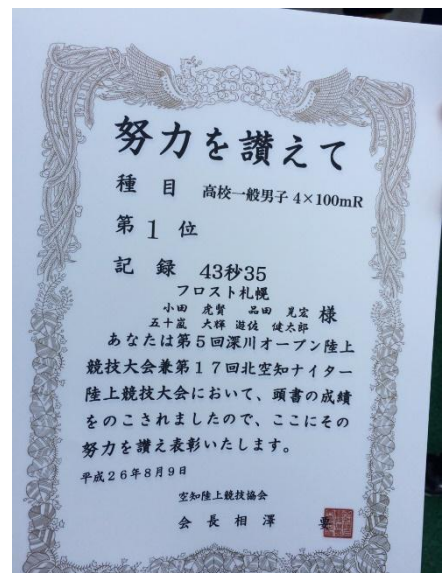 努力を讃えて
種目 高校一般男子 4×100mR
第1位
記録 43秒35
フロスト札幌
小田 虎賢 品田 晃宏 様
五十嵐 大輝 遊佐 健太郎
あなたは第5回深川オープン陸上
競技大会兼第17回北空知ナイター
陸上競技大会において、頭書の成績
をのこされましたので、ここにその
努力を讃え表彰いたします。
平成26年8月9日
空知陸上競技協会
会長 相澤 要